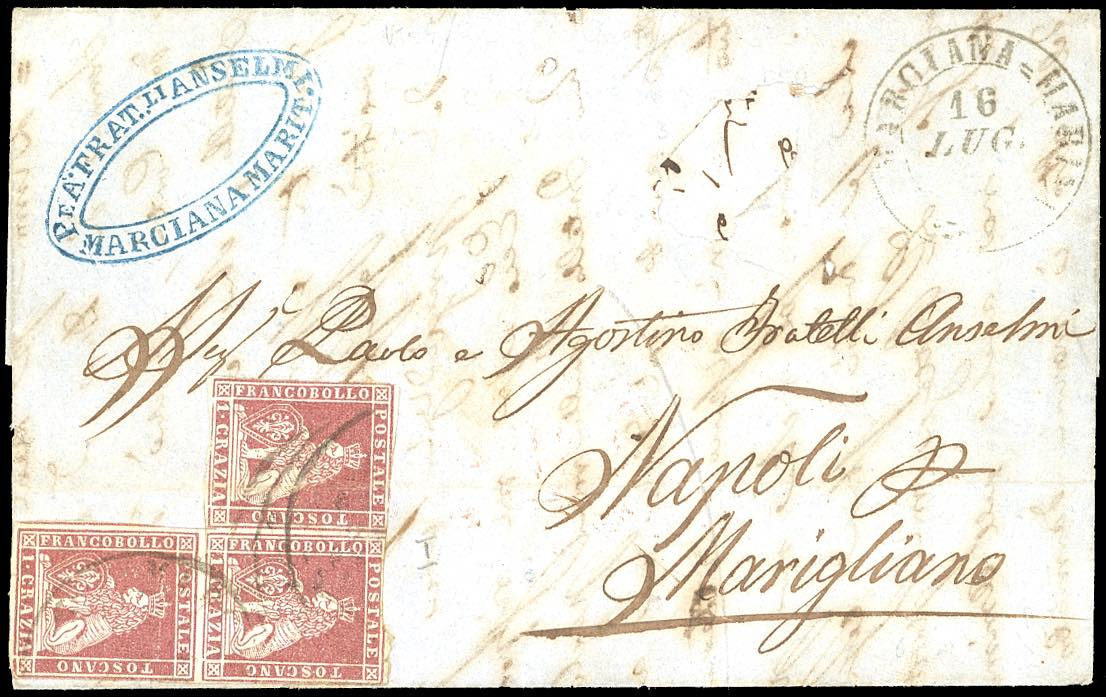 PEA. FRAT.LLI ANSELMI.
MARCIANA MARIT.
MARCIANA=MARIN
16
LUG.
Paolo e Agostino Fratelli Anselmi
Napoli
Marigliano
FRANCOBOLLO
POSTALE
TOSCANO
1·CRAZIA
FRANCOBOLLO
POSTALE
TOSCANO
1·CRAZIA
FRANCOBOLLO
POSTALE
TOSCANO
1·CRAZIA
I